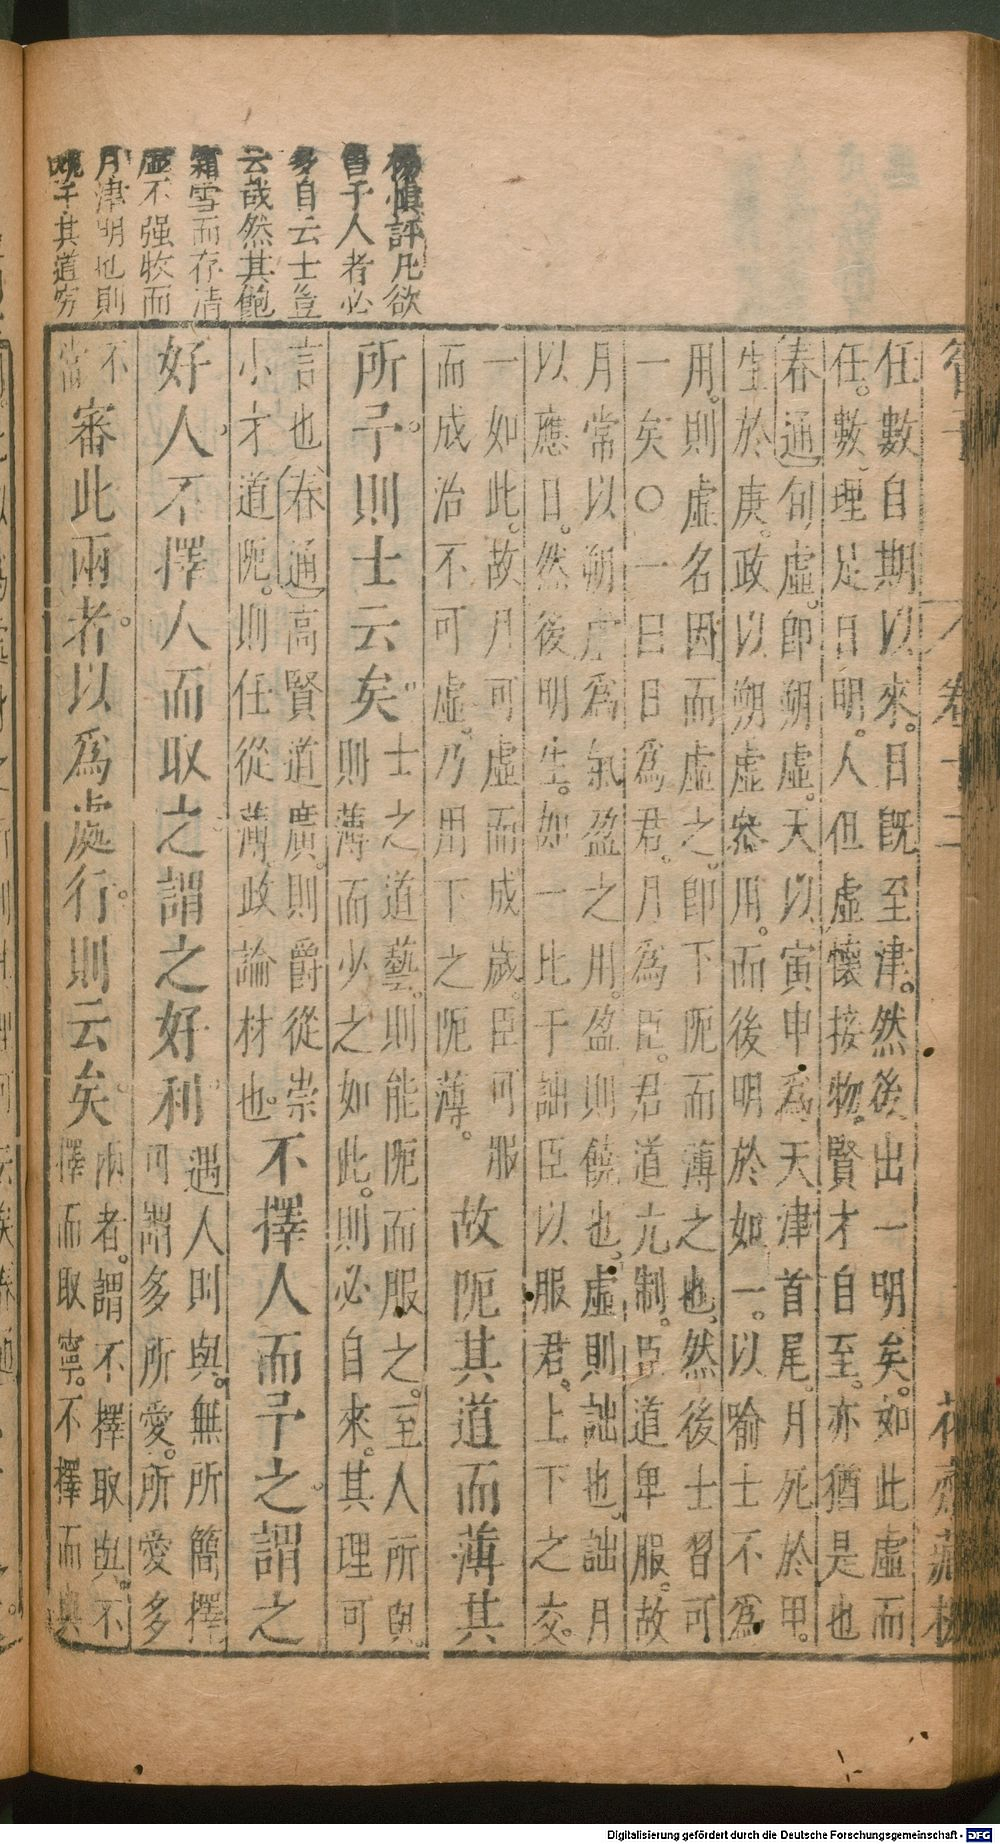 楊慎評凡欲
予人者必
多自云士豈
云哉然其飽
霜雪而存清
虛不强收而
月津明也則
其道穷
任數自期以來。日既至津。然後出一明矣。如此虛而
任。數理足日明。人但虛懷接物。賢才自至。亦猶是也
春通句虛。即朔虛。天以寅申為天津首尾。月死於甲。
生於庚。政以朔虛叅用。而後明於如一。以喻士不爲
用。則虛名因而虛之。即下阨而薄之也。然後士習可
一矣〇一曰日爲君。月爲臣。君道亢制。臣道卑服。故
月常以朔虛爲氣盈之用。盈則饒也。虛則詘也。詘月
以應日。然後明生。如一比于詘臣以服君。上下之交。
一如此。故月可虛而成歲。臣可服
而成治不可虛。乃用下之阨薄。
故阨其道而薄其
所予。則士云矣。
士之道藝。則能阨而服之。至人所與。
則薄而少之如此。則必自來。其理可
言也春通高賢道廣。則爵從崇
小才道阨。則任從薄。政論材也。
不擇人而予之。謂之
好人。不擇人而取之。謂之好利。
遇人則與。無所簡擇
可謂多所愛。所愛多
不
當
審此兩者。以爲處行。則云矣。
兩者。謂不擇取與。不
擇而取寧。不擇而與
卷十二
花齋藏板
Digitalisierung gefördert durch die Deutsche Forschungsgemeinschaft - DFG